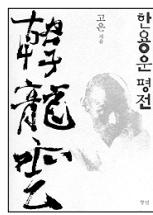 한용운 평전
고은 지음
韓龍雲
향연